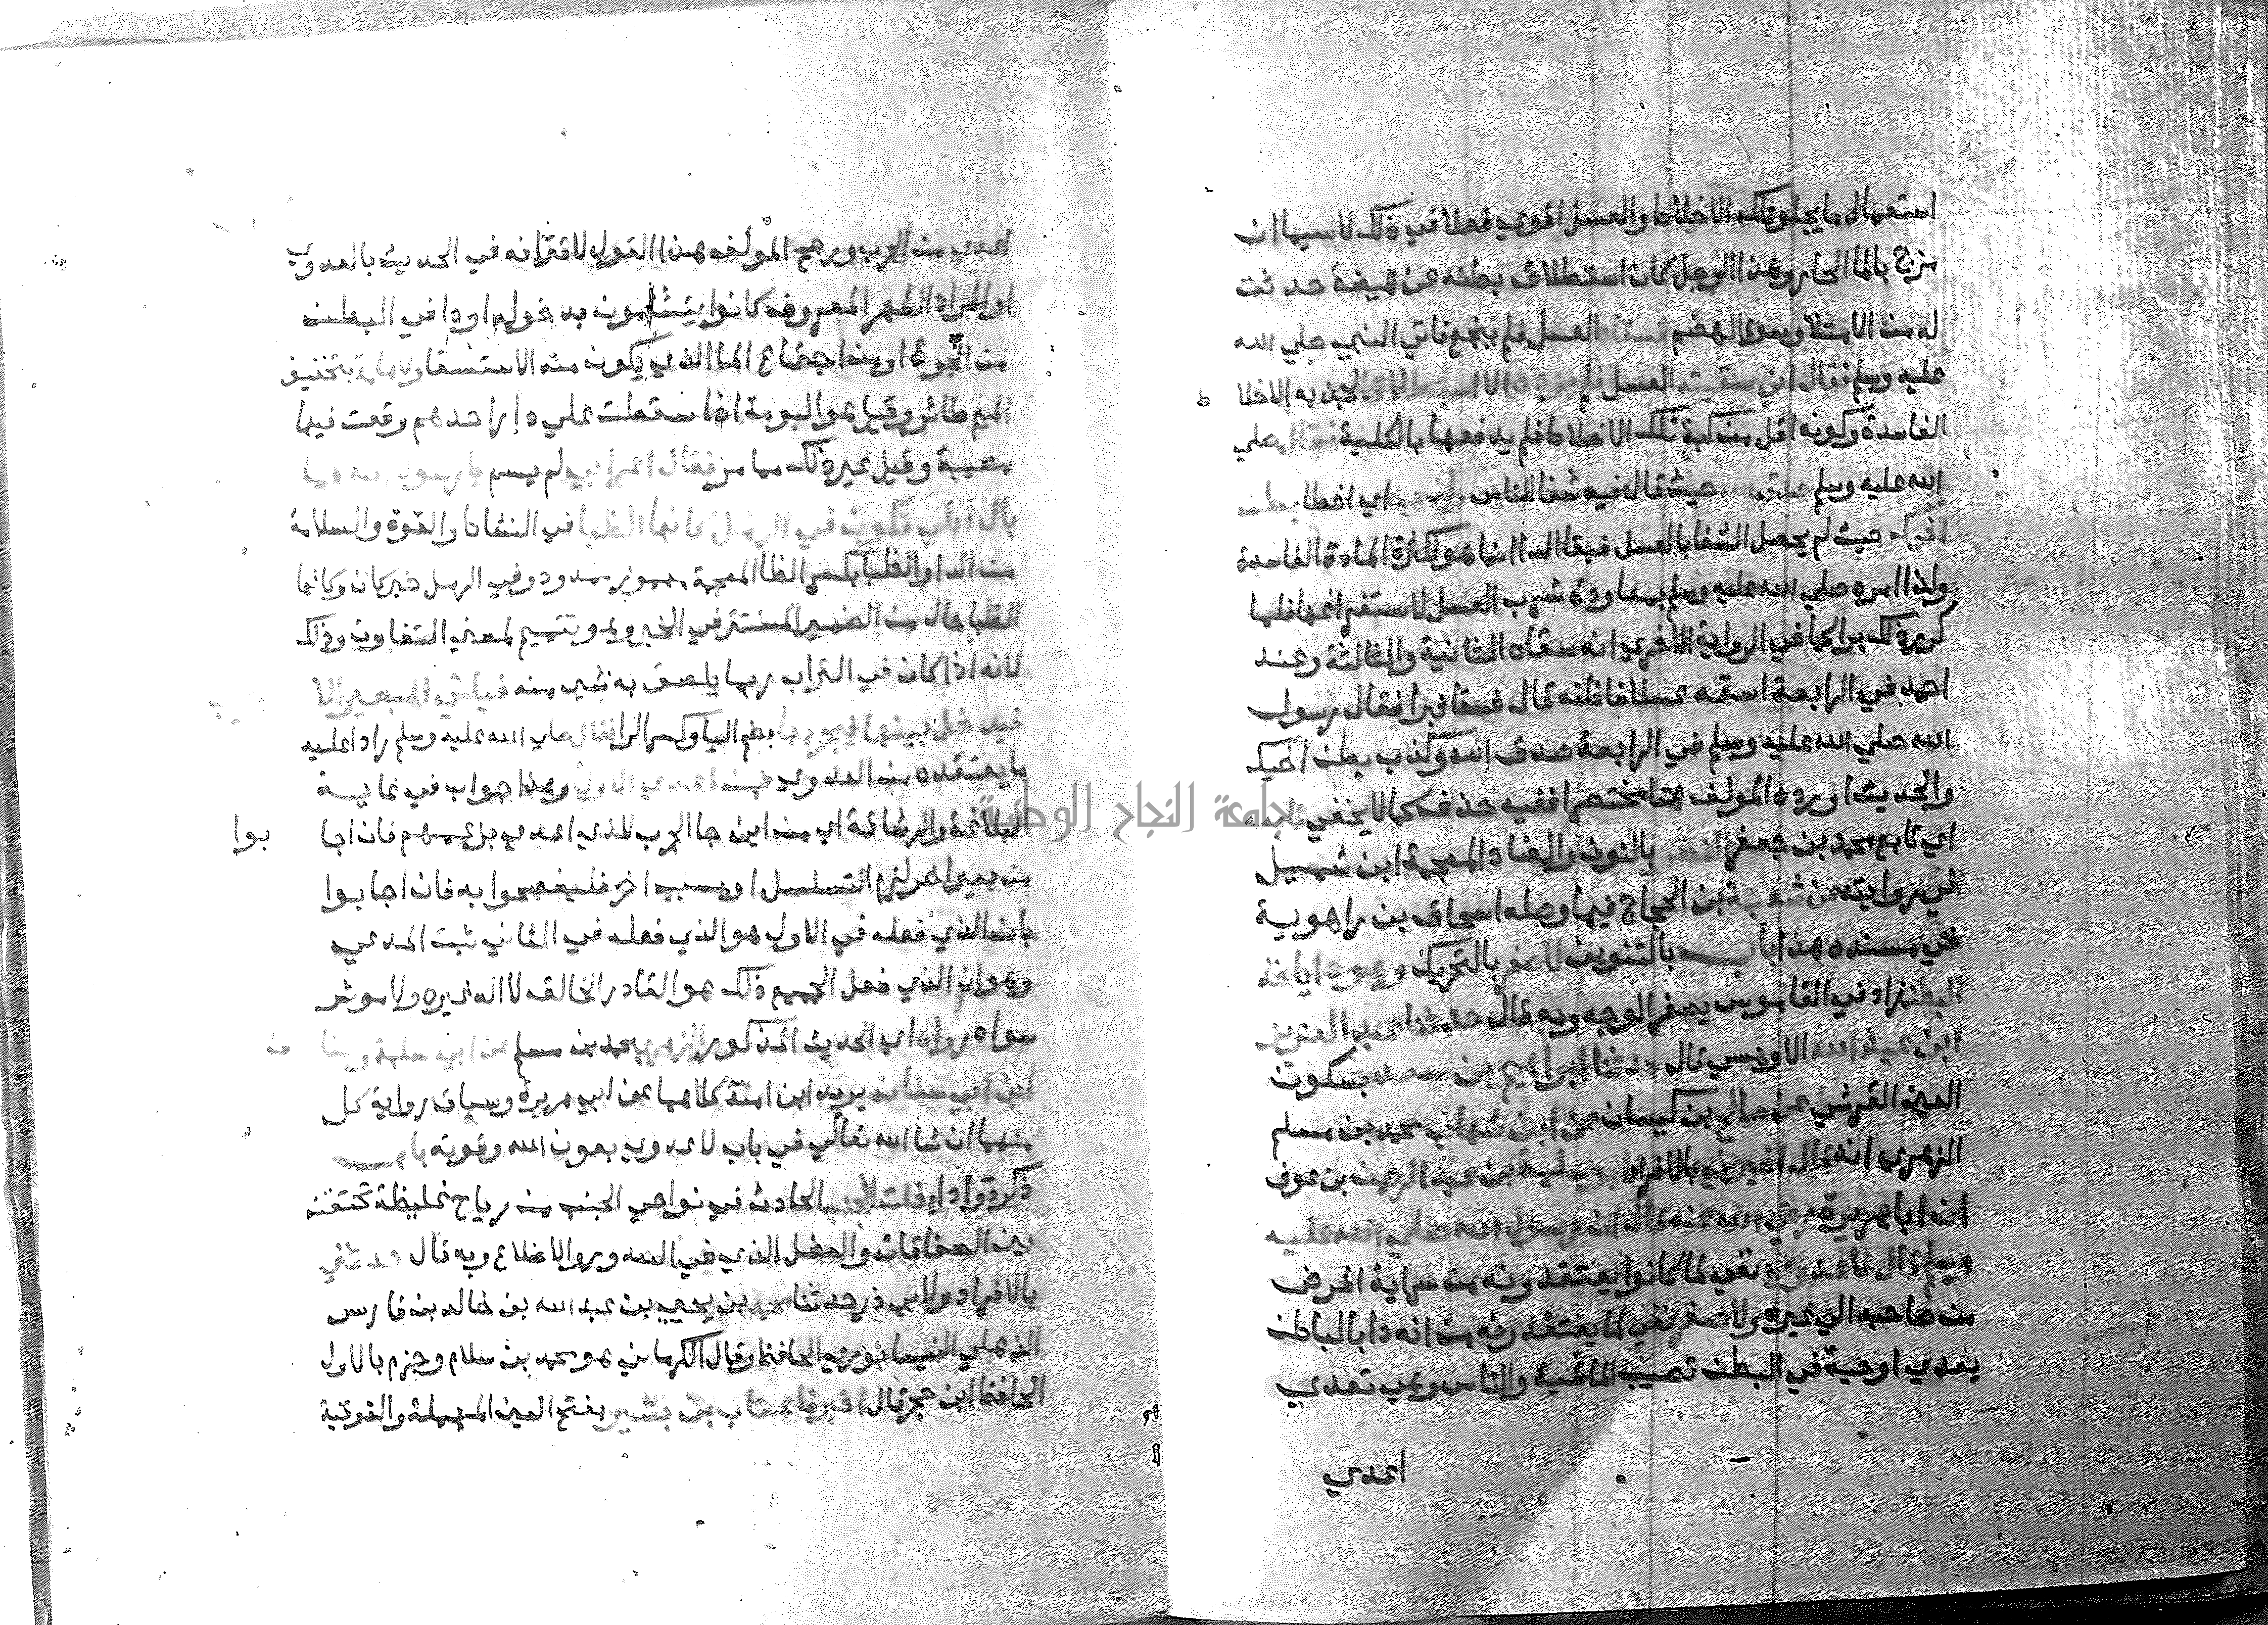 استعمال ما يجلو تلك الاخلاط والعسل اقوي فعلا في ذلك لاسيما ان
مزج بالما الحار وهذا الرجل كان استطلاق بطنه عن هيضة حدثت
له من الامتلا وسو الهضم فسقاه العسل فلم ينجع فاتي النبي صلي الله
عليه وسلم فقال اني سقيته العسل فلم يزده الا استطلاقا لجذبه الاخلا
ط
الفاسدة وكونه اقل من كمية تلك الاخلاط فلم يدفعها بالكلية فقال صلي
الله عليه وسلم صدق الله حيث قال فيه شفا للناس وكذب اي اخطا بطن
اخيك حيث لم يحصل الشفا بالعسل فبقا الدا انما هو لكثرة المادة الفاسدة
ولذا امره صلي الله عليه وسلم بمعاودة شرب العسل لاستفراغها فلما
كرر ذلك برا كما في الرواية الاخري انه سقاه الثانية والثالثة وعند
احمد في الرابعة اسقه عسلا فاظنه قال فسقا فبرا فقال رسول
الله صلي الله عليه وسلم في الرابعة صدق الله وكذب بطن اخيك
والحديث اورده المولف هنا مختصرا ففيه حذف كما لا يخفي تابعه
اي تابع محمد بن جعفر النضر بالنون والضاد المعجمة ابن شميل
في روايته عن شعبة بن الحجاج فيما وصله اسحاق بن راهوية
في مسنده هذا باب بالتنوين لا صفر بالتحريك وهو دا ياخذ
البطن زاد في القاموس يصفر الوجه وبه قال حدثنا عبد العزيز
ابن عبد الله الاويسي قال حدثنا ابراهيم بن سعد بسكون
العين القرشي عن صالح بن كيسان عن ابن شهاب محمد بن مسلم
الزهري انه قال اخبرني بالافراد ابو سلمة بن عبد الرحمن بن عوف
ان ابا هريرة رضي الله عنه قال ان رسول الله صلي الله عليه
وسلم قال لا عدوي نفي لما كانوا يعتقدونه من سراية المرض
من صاحبه الي غيره ولا صفر نفي لما يعتقدونه من انه دا بالباطن
يعدي او حية في البطن تصيب الماشية والناس وهي تعدي
اعدي
اعدي من الجرب ورجح المؤلف هذا القول لاقترانه في الحديث بالعدوي
او المراد الشهر المعروف كانوا يتشامون بدخوله او دا في البطن
من الجوع او من اجتماع الما الذي يكون منه الاستسقا ولا هامة بتخفيف
الميم طائر وقيل هو البومة اذا سقطت علي دار احدهم وقعت فيها
مصيبة وقيل غير ذلك مما مر فقال اعرابي لم يسم يا رسول الله فما
بال ابلي تكون في الرمل كانها الظبا في النشاط والقوة والسلامة
من الدا والظبا بكسر الظا المعجمة مهموز ممدود وفي الرمل خبر كان وكانها
الظبا حال من الضمير المستتر في الخبر وهو تتميم لمعني النقاوة وذلك
لانه اذا كان في التراب ربما يلصق به شي منه فياتي البعير الا
فيدخل بينها فيجربها بضم اليا وكسر الرا فقال صلي الله عليه وسلم رادا عليه
ما يعتقده من العدوي فمن اعدي الاول وهذا جواب في غاية
البلاغة والرشاقة اي من اين جا الجرب للذي اعدي بزعمهم فان اجا
بوا
من بعير اخر لزم التسلسل او بسبب اخر فليفصحوا به فان اجابوا
بان الذي فعله في الاول هو الذي فعله في الثاني ثبت المدعي
وهو ان الذي فعل الجميع ذلك هو القادر الخالق لا اله غيره ولا موثر
سواه رواه اي الحديث المذكور الزهري محمد بن مسلم عن ابي سلمة و
ابن ابي سنان يزيد ابن امية كلاهما عن ابي هريرة وسياق رواية كل
منهما ان شا الله تعالي في باب لا عدوي بعون الله وقوته باب
ذكر دوا دا ذات الجنب الحادث في نواحي الجنب من رياح غليظة تحتقن
بين الصفاقات والعضل الذي في الصدر والاضلاع وبه قال حدثني
بالافراد ولابي ذر حدثنا محمد بن يحيي بن عبد الله بن خالد بن فارس
الذهلي النيسابوري الحافظ وقال الكرماني هو محمد بن سلام وجزم بالاول
الحافظ ابن حجر قال اخبرنا عتاب بن بشير بفتح العين المهملة والفوقية
جامعة النجاح الوطنية